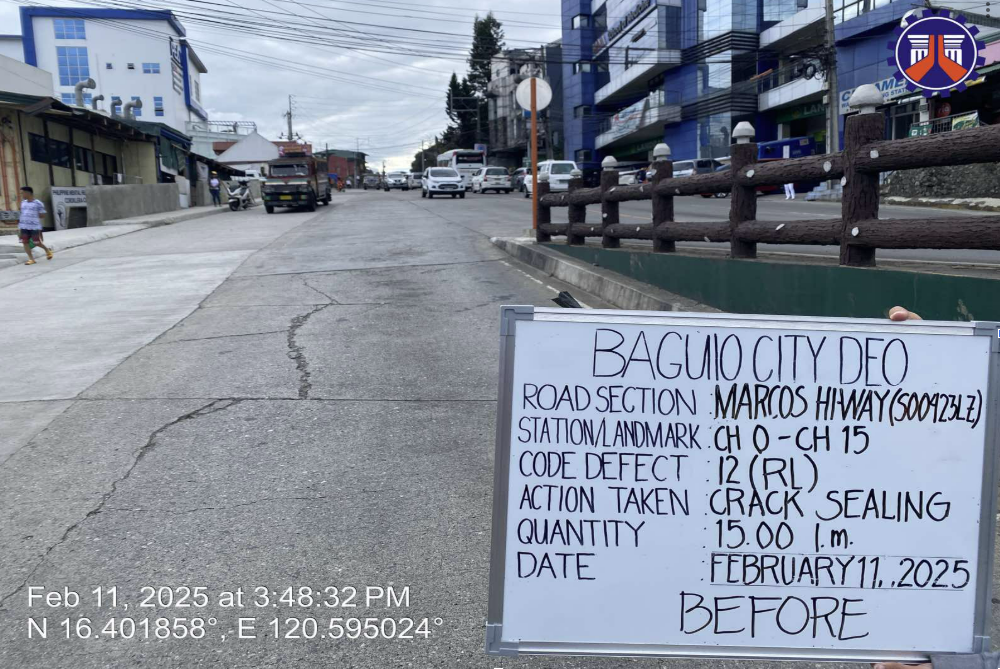 BAGUIO CITY DEO
ROAD SECTION : MARCOS HI-WAY (S00923LZ)
STATION/LANDMARK : CH 0 - CH 15
CODE DEFECT : 12 (RL)
ACTION TAKEN : CRACK SEALING
QUANTITY : 15.00 l.m.
DATE : FEBRUARY 11, 2025
BEFORE
Feb 11, 2025 at 3:48:32 PM
N 16.401858°, E 120.595024°